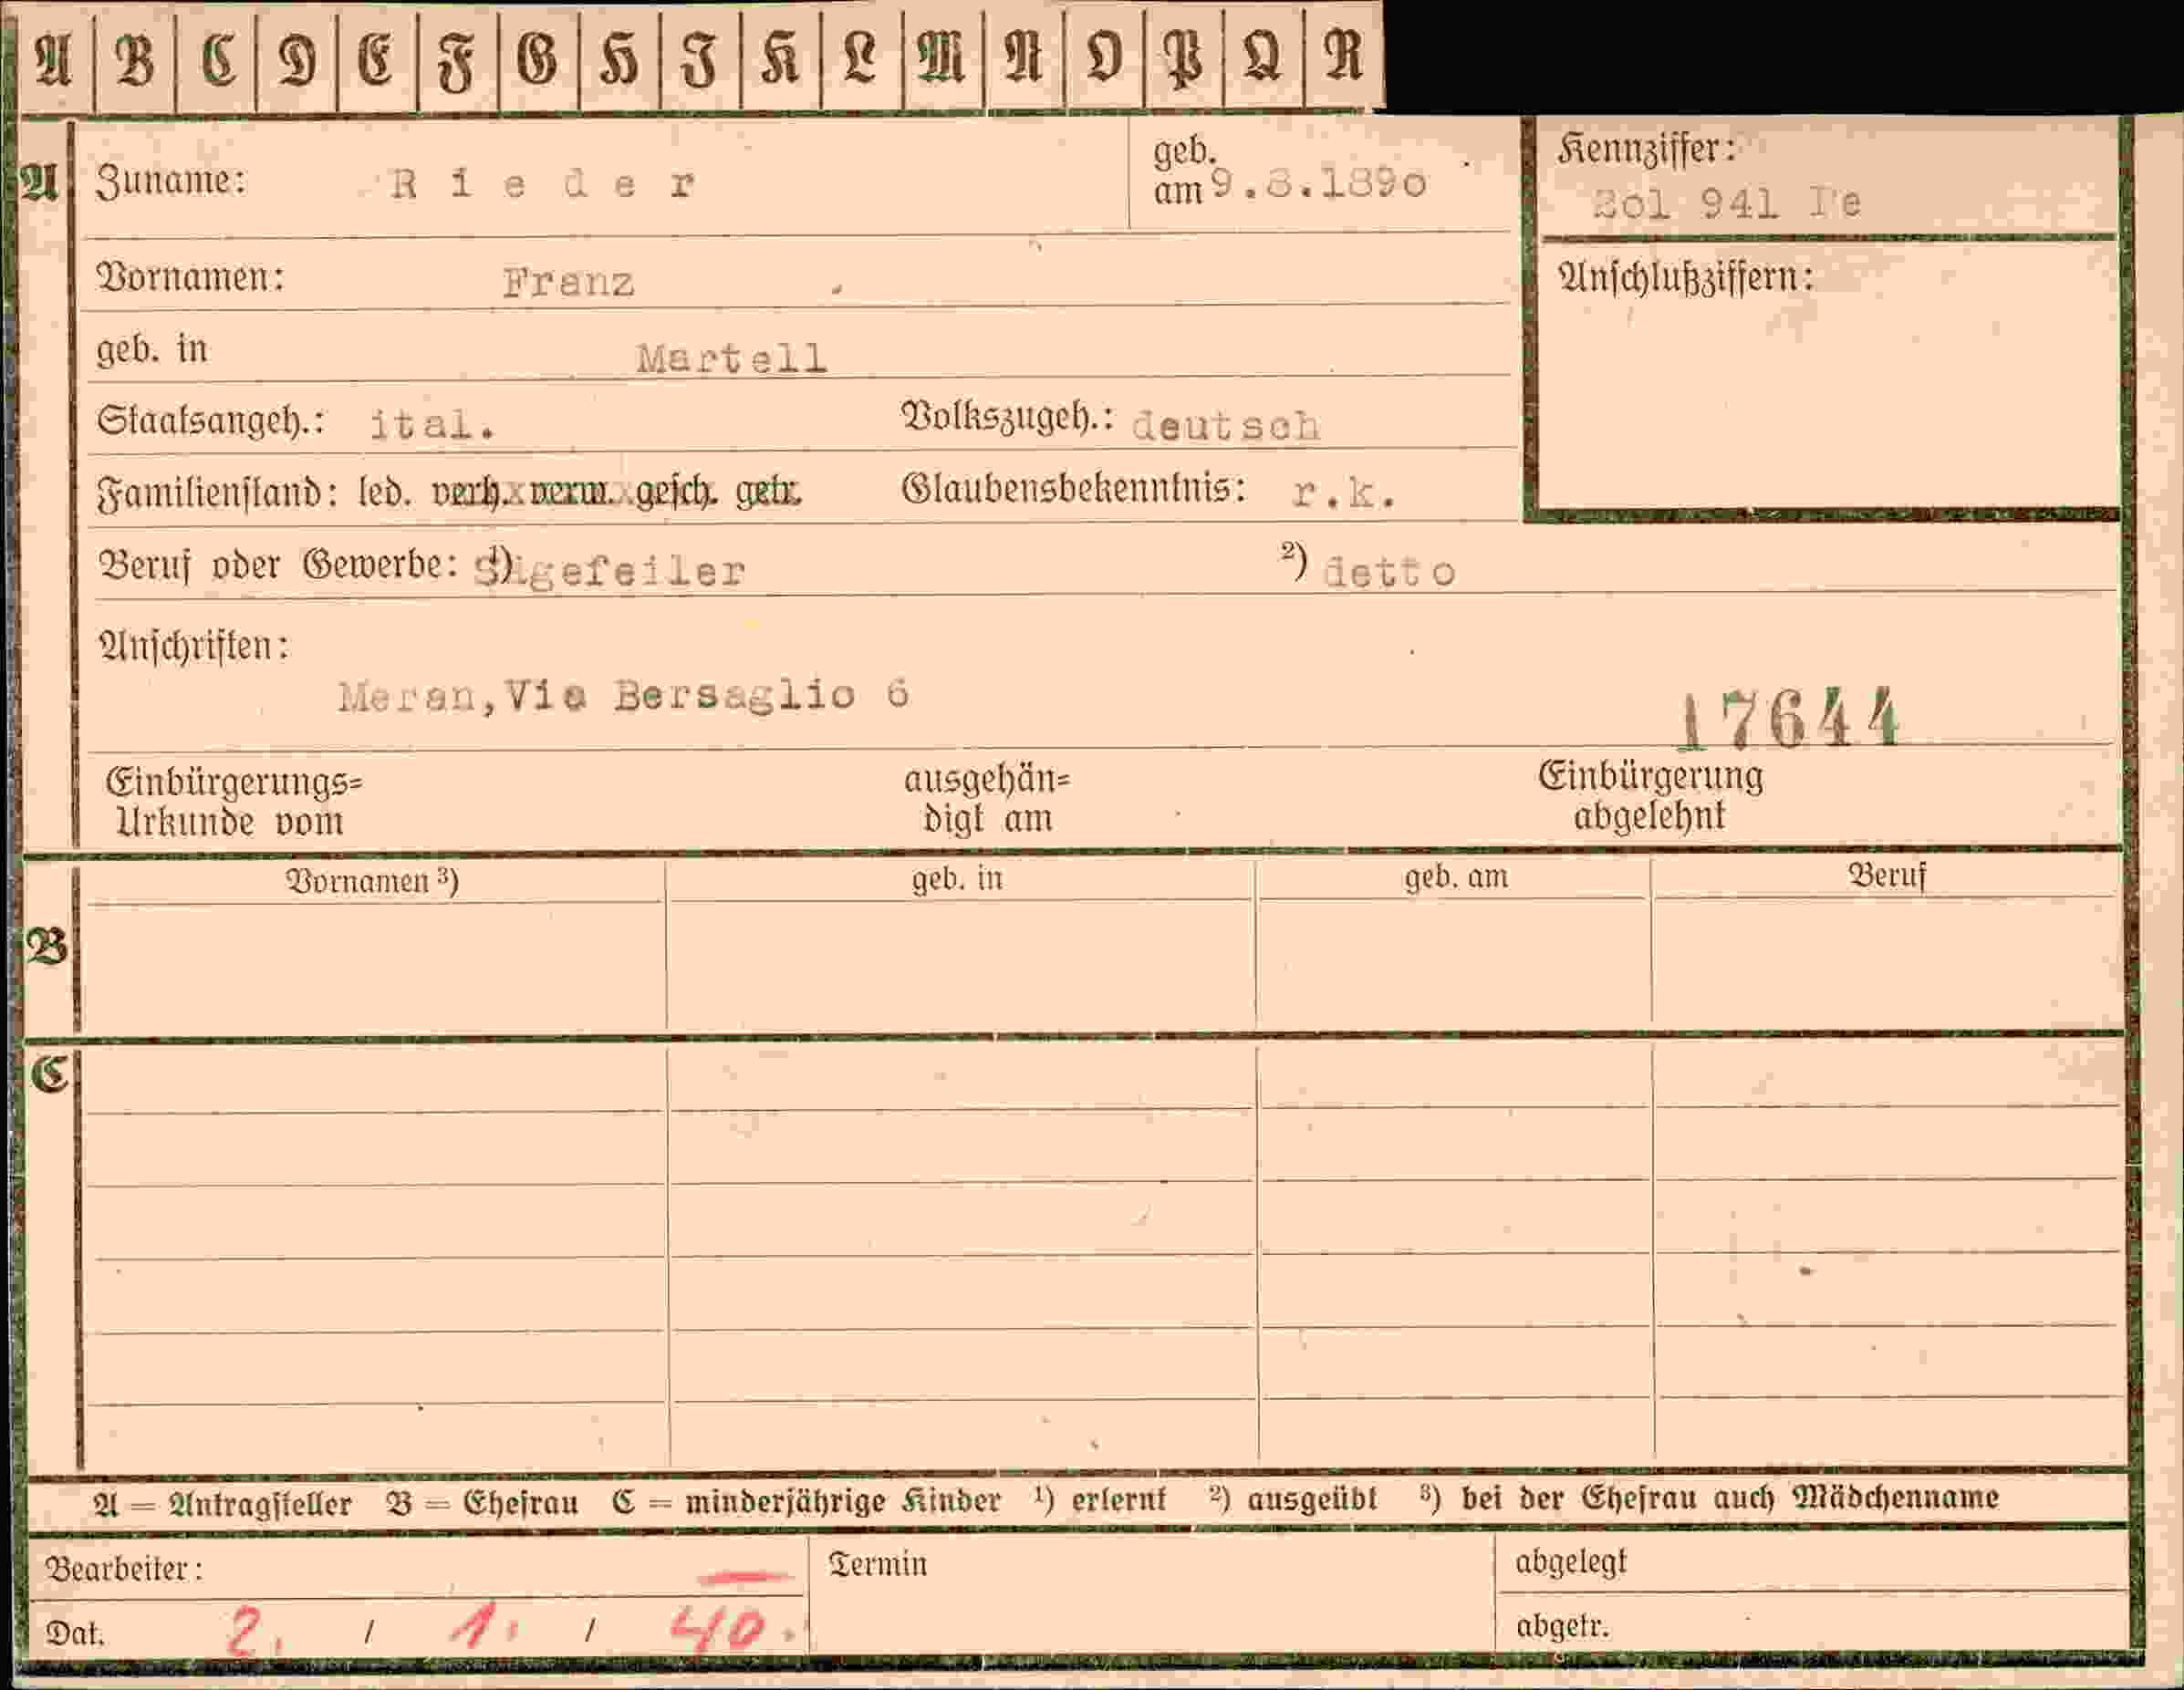 A B C D E F G H I K L M N O P Q R
A Zuname: Rieder geb. am 9.8.1890 Kennziffer:
941
Vornamen: Franz Anschlußziffern:
geb. in Martell
Staatsangeh.: ital. Volkszugeh.: deutsch
Familienstand: led. verh. verw. gesch. getr. Glaubensbekenntnis: r.k.
Beruf oder Gewerbe: 1) Sägefeiler 2) detto
Anschriften:
Meran,Via Bersaglio 6
17644
Einbürgerungs=
Urkunde vom
ausgehän=
digt am
Einbürgerung
abgelehnt
B Vornamen 3) geb. in geb. am Beruf
C
A = Antragsteller B = Ehefrau C = minderjährige Kinder 1) erlernt 2) ausgeübt 3) bei der Ehefrau auch Mädchenname
Bearbeiter: Termin abgelegt
Dat. 2. / 1. / 40. abgetr.